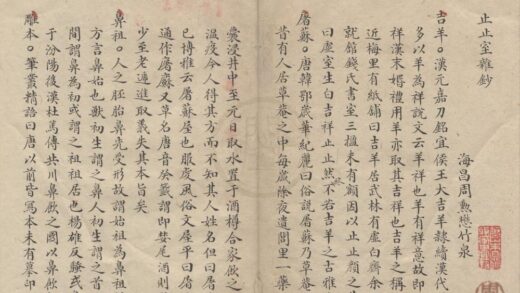 止止室雜鈔
海昌周勲懋竹泉
吉羊。漢元嘉刀銘宜侯王大吉羊隸續漢代
多以羊為祥說文云羊祥也羊有祥意故即
祥漢末婚禮用羊亦取其吉祥也吉羊之稱
近梅里有紙鋪曰吉羊居武林有虛白齋余
就館錢氏書室三楹未有額因以止止顏之
曰虛室生白吉祥止止然不若吉羊之古雅
屠蘇。唐韓鄂歲華紀麗曰俗說屠蘇乃草菴
昔有人居草菴之中每歲除夜遺閭里一藥
囊浸井中至元日取水置于酒樽合家飲之
瘟疫今人得其方而不知其人姓名但曰屠
已博雅云屠蘇屋也服虔風俗文屋平曰屠
通作蘇又草名唐音癸籤謂即婪尾酒則
少至老遞進取義失其本旨矣
鼻祖。人之胚胎鼻先受形故謂始祖為鼻祖
方言鼻始也獸初生謂之鼻人初生謂之首
間謂鼻為初或謂之祖祖居也楊雄反騷或
于汾隅後漢杜篤傳共川鼻飲之國以鼻飲
雕本。筆叢精語曰唐以前皆寫本未有摹印